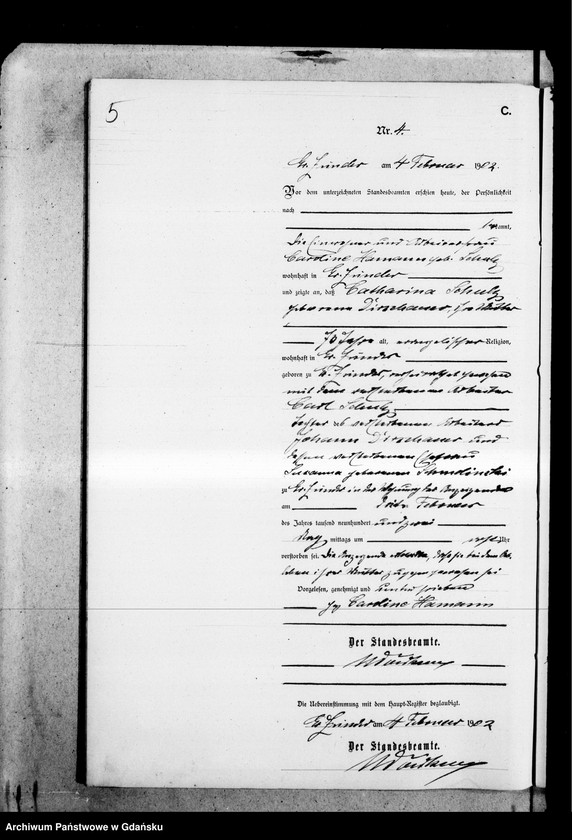 5
C.
Nr. 4.
Gr. Zünder am 4 Februar 1902.
Vor dem unterzeichneten Standesbeamten erschien heute, der Persönlichkeit
nach
kannt,
die Einwohner und Arbeiterfrau
Caroline Hamann geb. Schulz
wohnhaft in Gr. Zünder
und zeigte an, daß Catharina Schulz
geborene Dirschauer, ihre Mutter
70 Jahre alt, evangelischer Religion,
wohnhaft in Gr. Zünder
geboren zu Gr. Zünder, verheirathet gewesen
mit dem verstorbenen Arbeiter
Carl Schulz
Tochter des verstorbenen Arbeiters
Johann Dirschauer und
dessen verstorbenen Ehefrau
Susanna geborenen
zu Gr. Zünder in der Wohnung der Anzeigenden
am dritten Februar
des Jahres tausend neunhundert und zwei
Nach mittags um Uhr
verstorben sei. Die Anzeigende daß sie bei dem Ab-
leben ihrer Mutter zugegen gewesen sei
Vorgelesen, genehmigt und unterschrieben
gez Caroline Hamann
Der Standesbeamte.
Die Uebereinstimmung mit dem Haupt-Register beglaubigt.
Gr. Zünder am 4 Februar 1902
Der Standesbeamte.
Archiwum Państwowe w Gdańsku